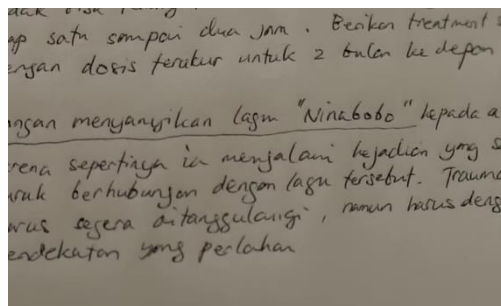 ap satu sampai dua jam. Berikan treatment s
engan dosis teratur untuk 2 bulan ke depan
ngan menyanyikan lagu "Ninabobo" kepada a
rena sepertinya ia mengalami kejadian yang s
uruk berhubungan dengan lagu tersebut. Trauma
arus segera ditanggulangi, namun harus deng
endekatan yang perlahan